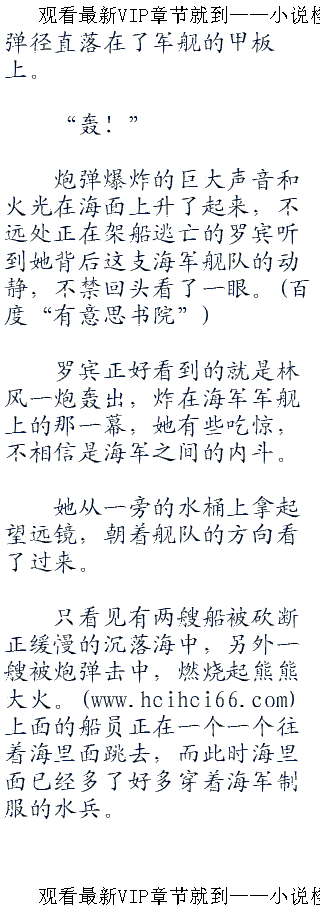 观看最新VIP章节就到——小说检
弹径直落在了军舰的甲板
上。
“轰！”
炮弹爆炸的巨大声音和
火光在海面上升了起来，不
远处正在架船逃亡的罗宾听
到她背后这支海军舰队的动
静，不禁回头看了一眼。(百
度“有意思书院”)
罗宾正好看到的就是林
风一炮轰出，炸在海军军舰
上的那一幕，她有些吃惊，
不相信是海军之间的内斗。
她从一旁的水桶上拿起
望远镜，朝着舰队的方向看
了过来。
只看见有两艘船被砍断
正缓慢的沉落海中，另外一
艘被炮弹击中，燃烧起熊熊
大火。(www.hcihci66.com)
上面的船员正在一个一个往
着海里面跳去，而此时海里
面已经多了好多穿着海军制
服的水兵。
观看最新VIP章节就到——小说检